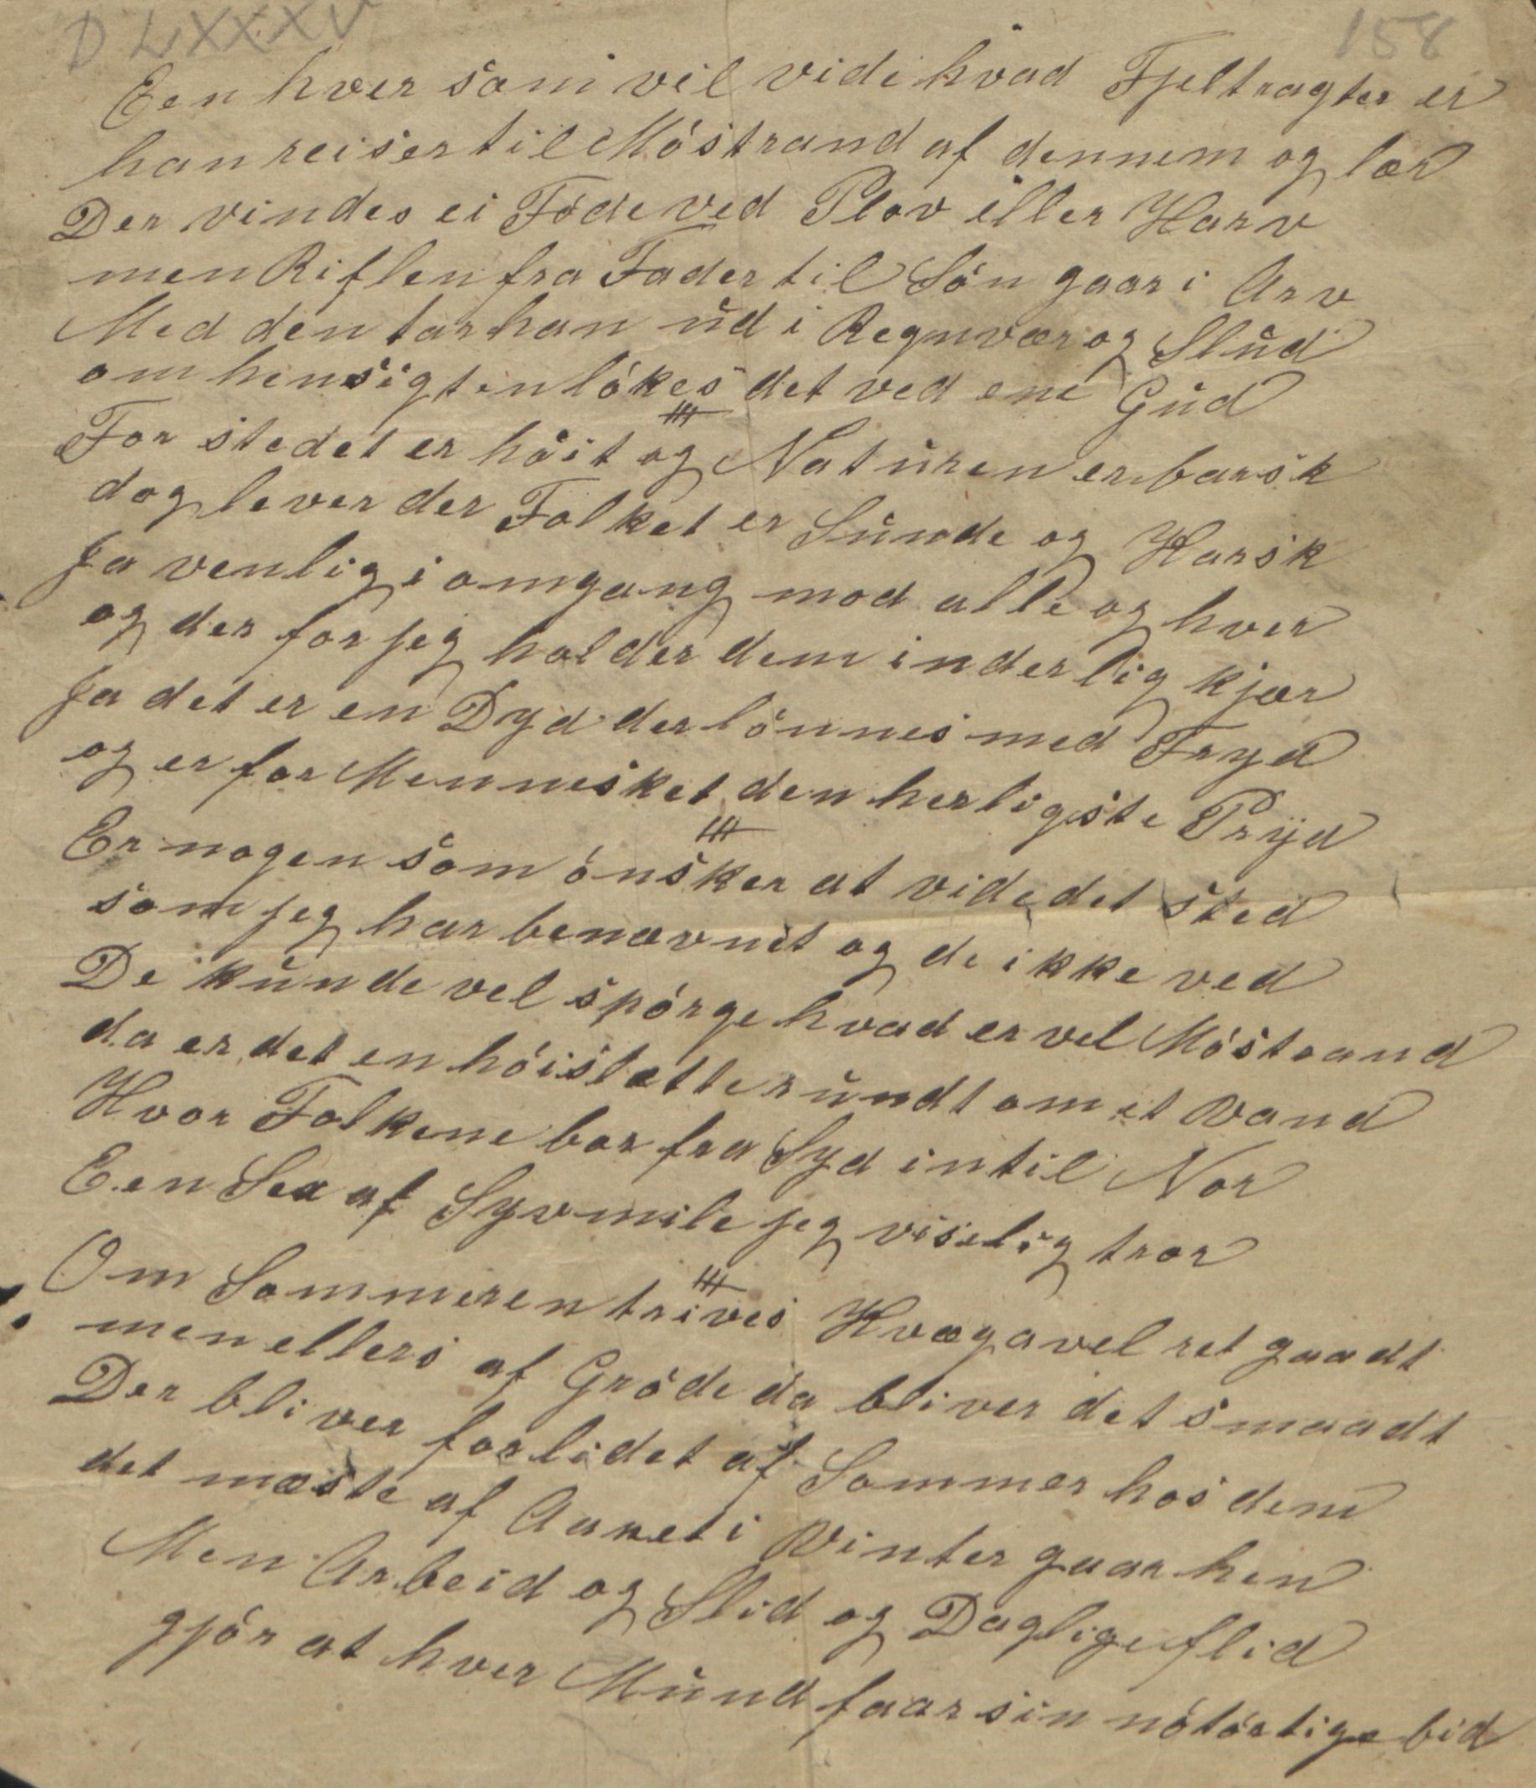 D LXXXV 158
Een hver som vil vide hvad Fjeltragter er
han reiser til Móstrand af dennem og lær
Der vindes ei Föde ved Plov eller Harv
men Riflen fra Fader til Són gaar i Arv
Med den tar han ud i Regnvær og Slud
om hensigten lókes det ved ene Gud
For stedet er hóit og Naturen er barsk
dog lever der Folket er Sunde og Harsk
Ja venlig i omgang mod alle og hver
og der for jeg holder dem inderlig kjær
Ja det er en Dyd der lónnes med Fryd
og er for Mennesket den herligste Pryd
Er nogen som ónsker at vide det sted
som jeg har benævnet og de ikke ved
De kunde vel spórge hvad er vel Móstrand
da er det en hóislætte rundt om et Vand
Hvor Folkene bor fra Syd intil Nor
Een Sex af Syvmile jeg viselig tror
Om Sommeren trives Kvægavel ret gaadt
men ellers af Gróde da bliver det smaadt
Der bliver forlidet af Sommer hos dem
det mæste af Aaret i Vinter gaar hen
Men Arbeid og Slid og Daglige flid
gjór at hver Mund faar sin nótórtige bid